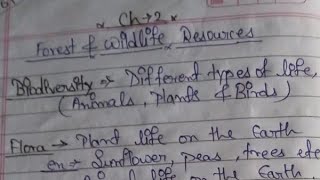 Ch→2
Forest & Wildlife Resources
Biodiversity → Different types of life,
(Animals, Plants & Birds)
Flora → Plant life on the Earth
ex→ Sunflower, Peas, trees etc
life on the Earth,